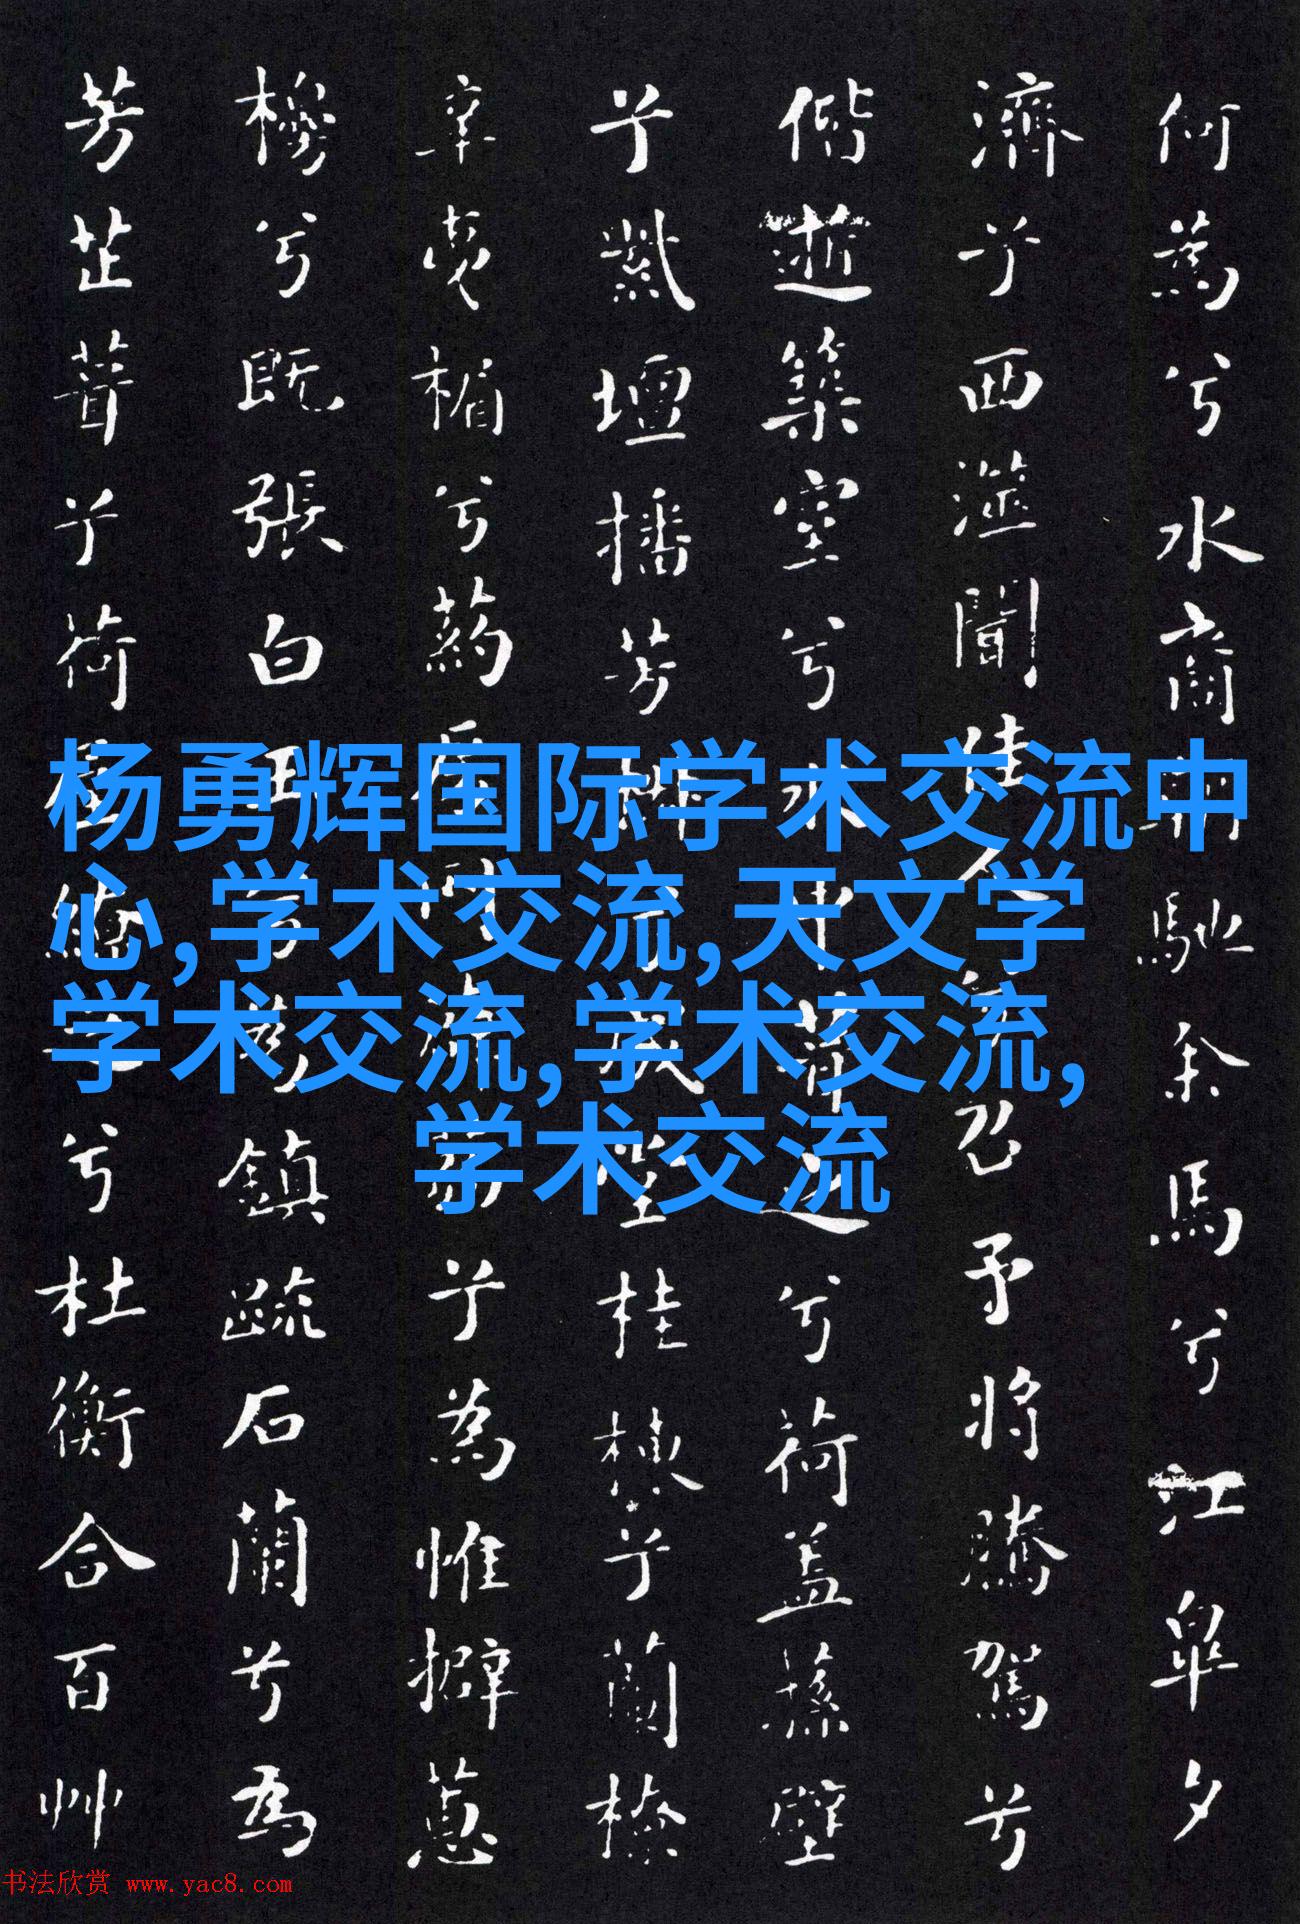 何為兮水裔馳余馬兮江皐夕
濟兮西澨聞佳人召予將騰駕兮
偕逝築室兮水中葺之兮荷蓋蓀壁
兮紫壇播芳成堂桂棟兮蘭橑
辛夷楣兮葯房兮為帷擗蕙
櫋兮既張白玉兮鎮疏石蘭兮為
芳芷葺兮荷屋繚兮杜衡合百艸
杨勇辉国际学术交流中
心,学术交流,天文学
学术交流,学术交流,
学术交流
书法欣赏 www.yac8.com